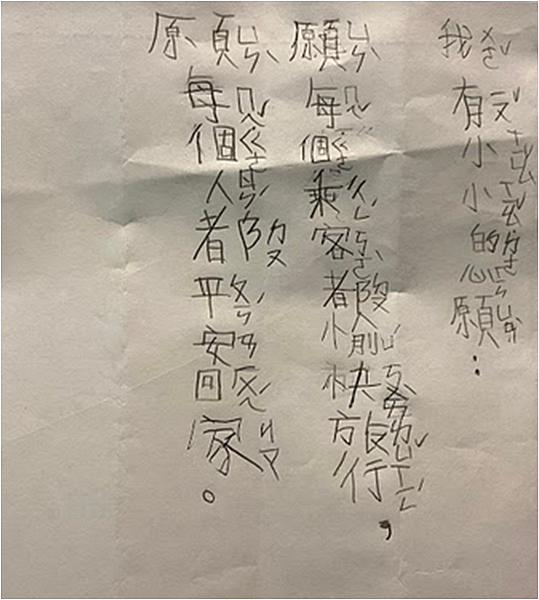 我有小小的心願：
願每個乘客都愉快旅行，
願每個人都平安回家。